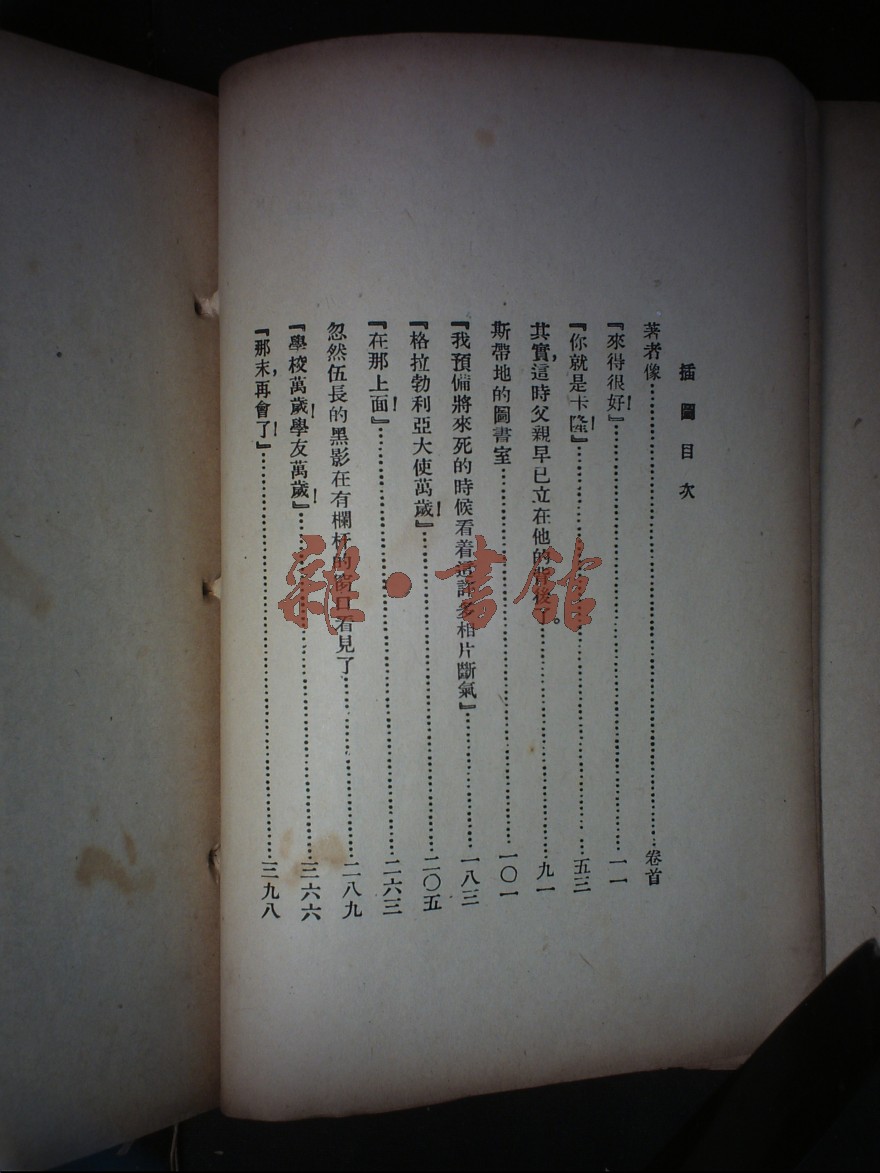 插圖目次
著者像……卷首
『來得很好!』……一一
『你就是卡隆!』……五三
其實,這時父親早已立在他的背後了。……九一
斯帶地的圖書室……一〇一
『我預備將來死的時候看着這許多相片斷氣』……一八三
『格拉勃利亞大使萬歲!』……二〇五
『在那上面!』……二六三
忽然伍長的黑影在有欄杆的窗口看見了……二八九
『學校萬歲!學友萬歲!』……三六六
『那末,再會了!』……三九八
雜·書館